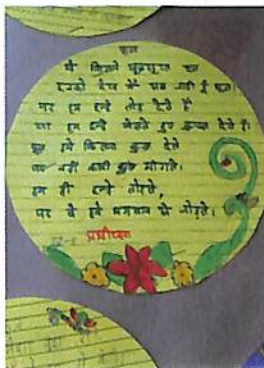 फूल
ये कितने खूबसूरत फूल
इनको देख मैं सब जाती हूँ भूल।
पर हम इन्हें तोड़ देते हैं
या हम इन्हें खेलते हुए कुचल देते हैं।
फूल हमें कितना कुछ देते
पर नहीं कभी कुछ माँगते।
हम ही इन्हें तोड़ते,
पर ये हमें भगवान से जोड़ते।